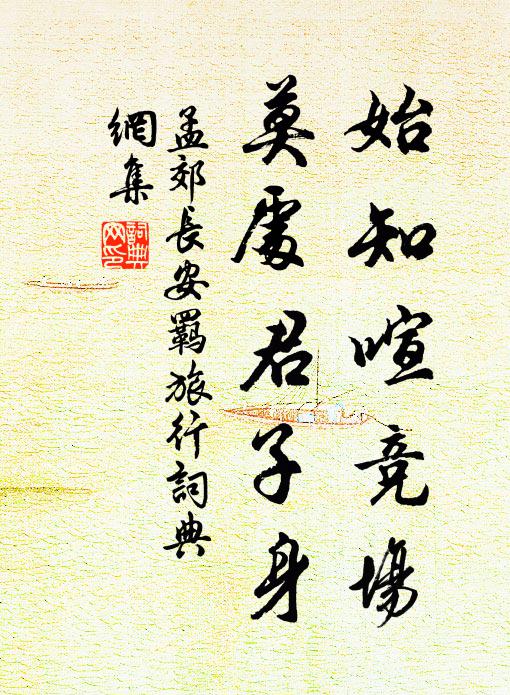 始知喧竞場
莫處君子身
孟郊長安羁旅行詞典
網集
詞典
网印